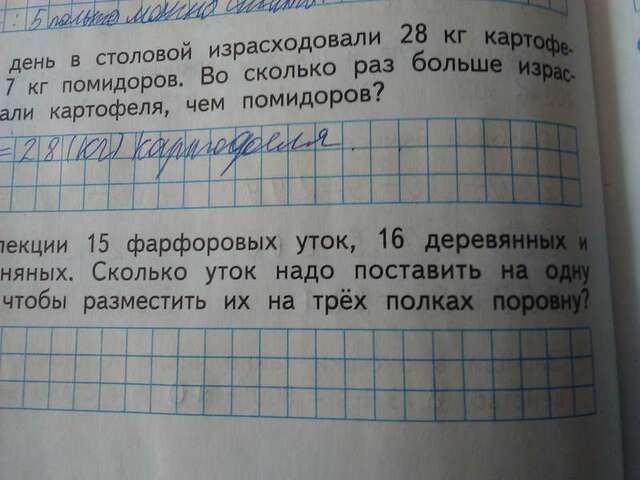 : 5 только можно
день в столовой израсходовали 28 кг картофе-
7 кг помидоров. Во сколько раз больше израс-
али картофеля, чем помидоров?
= 28 (кг) картофеля
лекции 15 фарфоровых уток, 16 деревянных и
няных. Сколько уток надо поставить на одну
чтобы разместить их на трёх полках поровну?